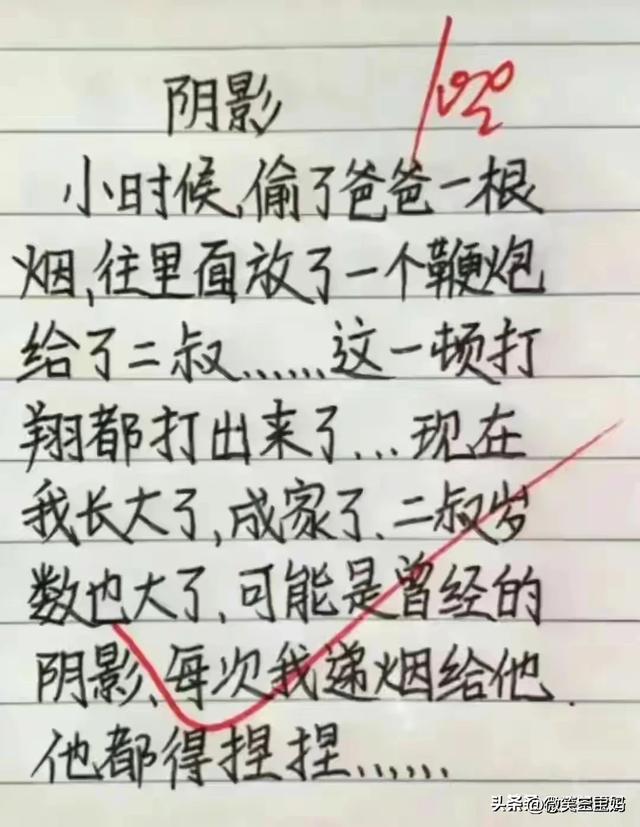 阴影
小时候,偷了爸爸一根
烟,往里面放了一个鞭炮
给了二叔......这一顿打
翔都打出来了...现在
我长大了,成家了、二叔岁
数也大了,可能是曾经的
阴影、每次我递烟给他
他都得捏捏......
头条 @微笑宝里妈